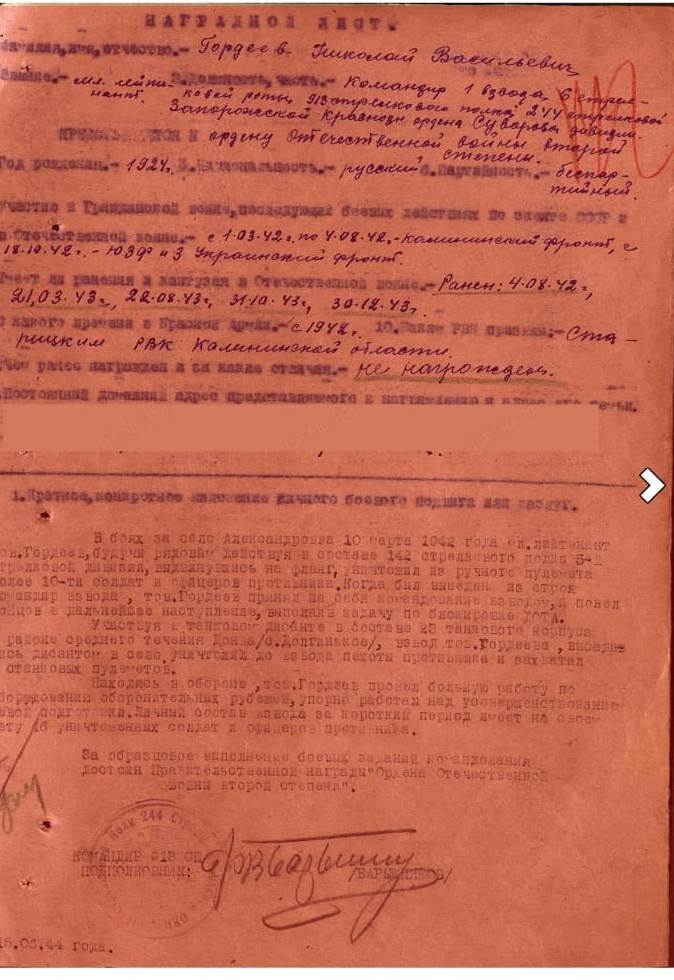 НАГРАДНОЙ ЛИСТ.
Фамилия, имя, отчество.- Гордеев Николай Васильевич
Звание.- мл. лейте- 2.Должность, часть.- Командир 1 взвода 6 стрел-
нант. ковой роты 913 стрелкового полка 244 стрелковой
Запорожской Краснозн. ордена Суворова дивизии.
ПРЕДСТАВЛЯЕТСЯ К ордену Отечественной войны второй
степени.
Год рождения.- 1924. 3.Национальность.- русский 6.Партийность.- беспар-
тийный.
Участие в Гражданской войне, последующих боевых действиях по защите СССР и
в Отечественной войне.- с 1.03.42г. по 4.08.42.- Калининский фронт, с
18.10.42.- ЮЗФ и 3 Украинский фронт.
Имеет ли ранения и контузии в Отечественной войне.- Ранен: 4.08.42г,
21,03.43г, 22.08.43г, 31.10.43г, 30.12.43г.
С какого времени в Красной Армии.- с 1942г. 10.Каким РВК призван:- Ста-
рицким РВК Калининской области.
Чем ранее награжден и за какие отличия.- не награжден.
.Постоянный домашний адрес представляемого к награждению и адрес его семьи.
1.Краткое, конкретное изложение личного боевого подвига или заслуг.
В боях за село Александровка 10 марта 1942 года мл.лейтенант
тов.Гордеев, будучи рядовым действуя в составе 142 стрелкового полка 5-й
трелковой дивизии, выдвинувшись на фланг, уничтожил из ручного пулемета
олее 10-ти солдат и офицеров противника. Когда был выведен из строя
омандир взвода, тов.Гордеев принял на себя командование взводом, и повел
ойцов в дальнейшее наступление, выполнив задачу по блокировке ДОТА.
Участвуя в танковом десанте в составе 23 танкового корпуса
районе среднего течения Донца/с.Долгинькое/, взвод тов.Гордеева, высадив
ись десантом в село, уничтожил до взвода пехоты противника и захватил
станковых пулеметов.
Находясь в обороне, тов.Гордеев провел большую работу по
борудованию оборонительных рубежей, упорно работал над усовершенствование
евой подготовки. Личный состав взвода за короткий период имеет на своем
ету 16 уничтоженных солдат и офицеров противника.
За образцовое выполнение боевых заданий командования
достоин Правительственной награды "Ордена Отечественной
войны второй степени".
КОМАНДИР 913 СП
ПОДПОЛКОВНИК: /БАРЫШНИКОВ/
15.06.44 года.